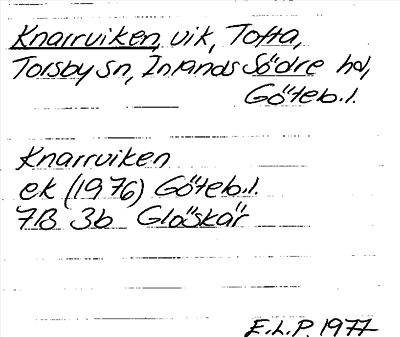 Knarrviken, vik, Tofta,
Torsby sn, Inlands Södre hd,
Göteb. l.
Knarrviken
ek (1976) Göteb.l.
7B 3b Glöskär
E.L.P. 1977